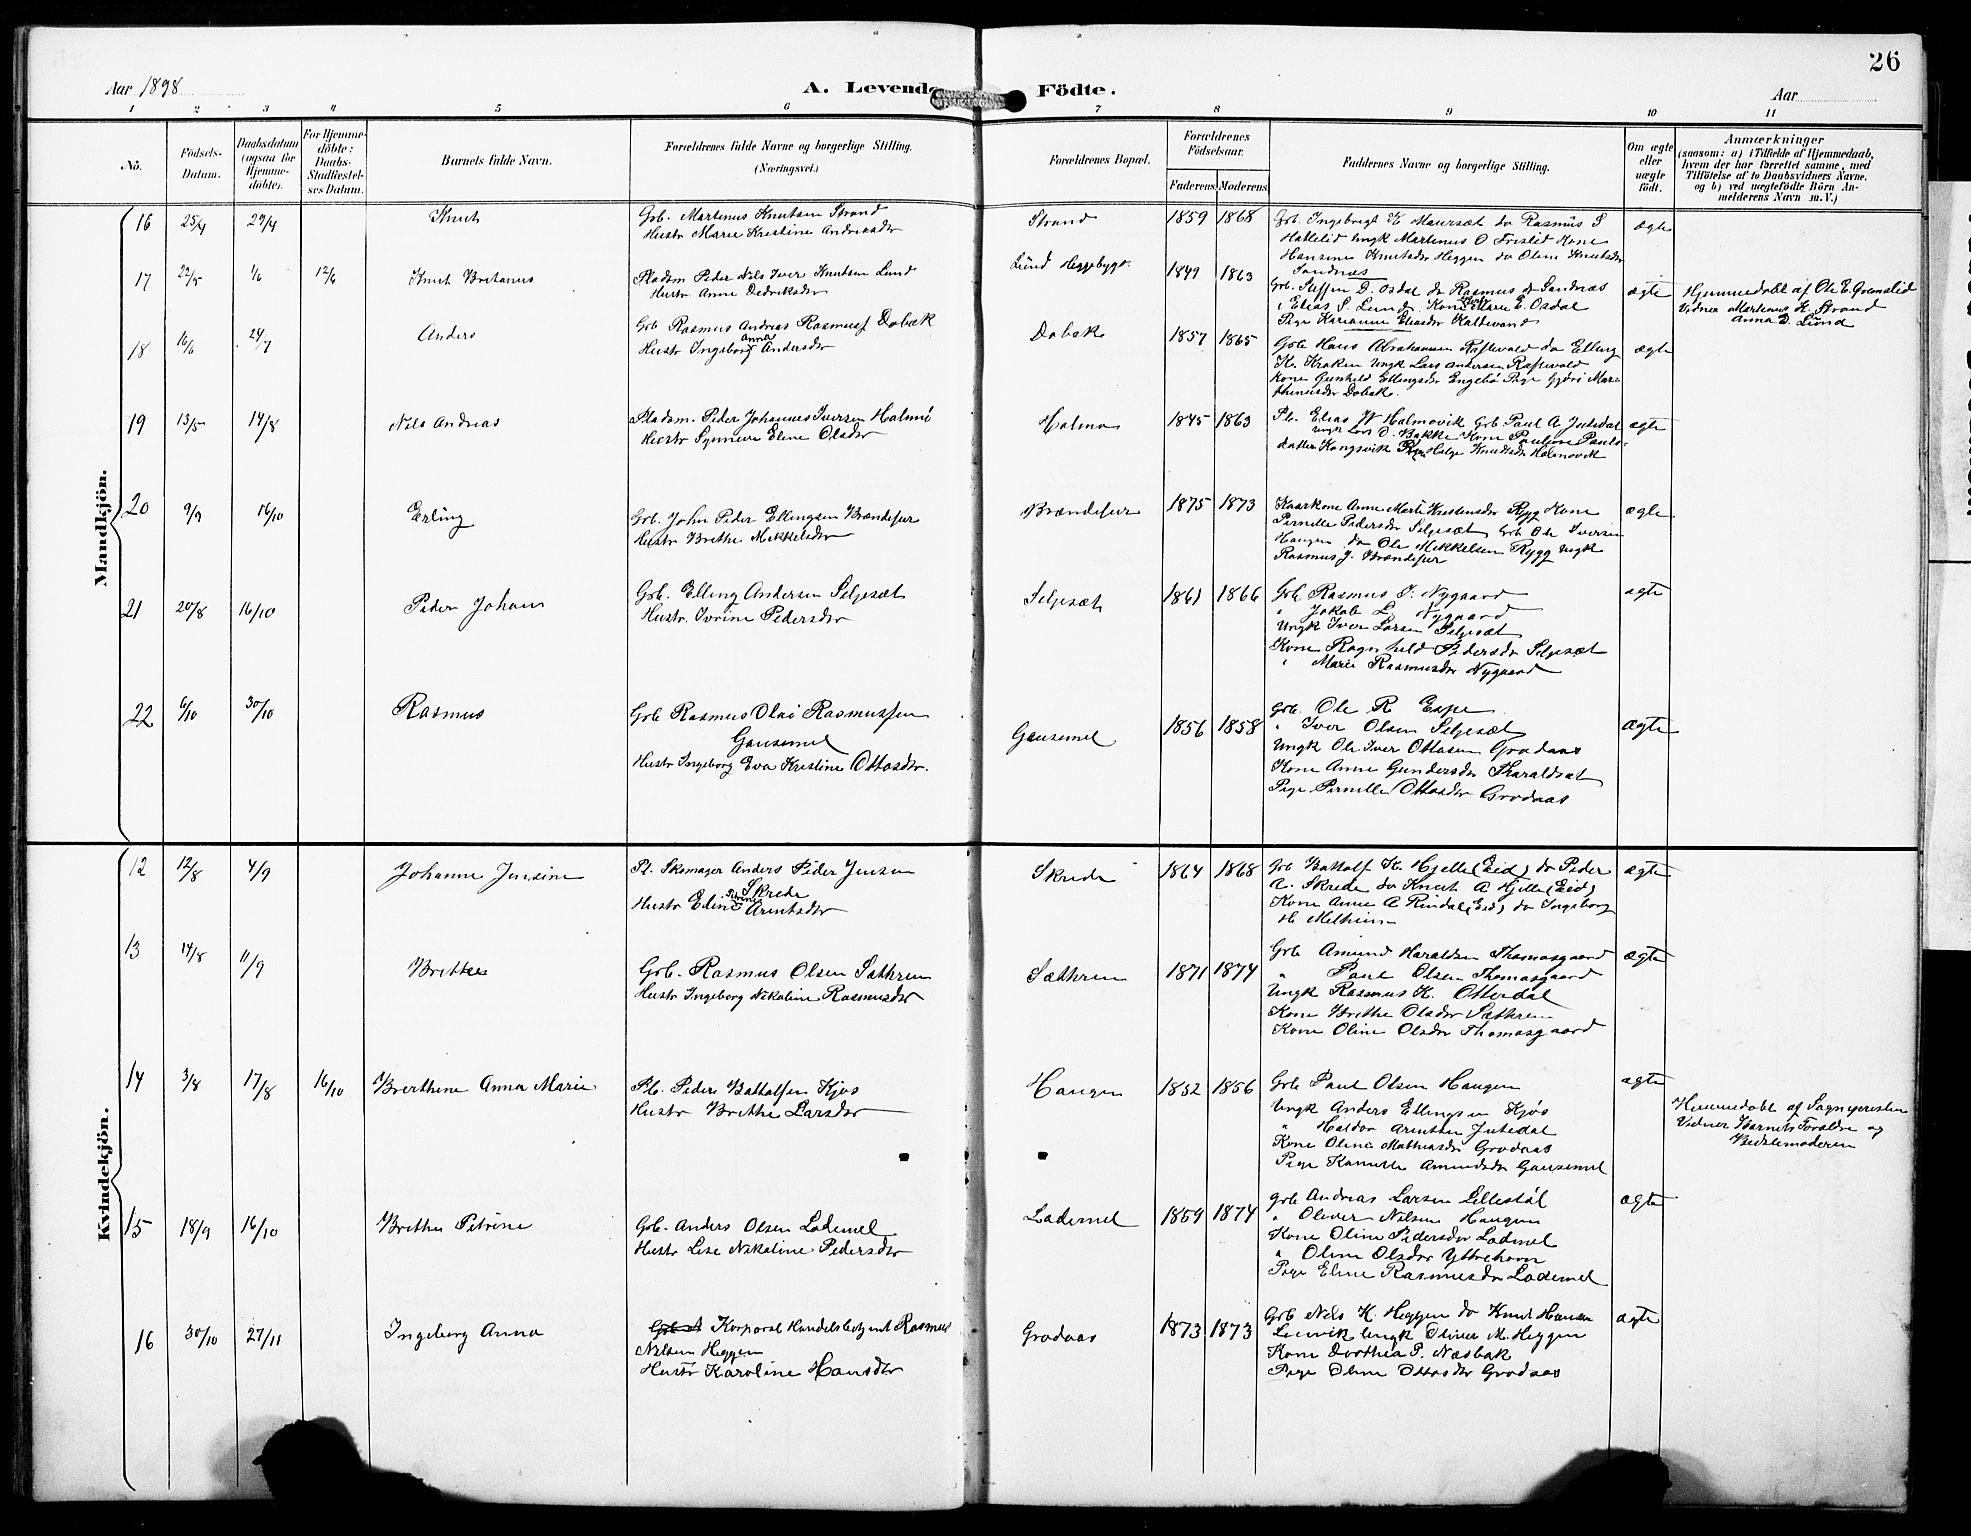 26
Aar 1898
A. Levende Födte.
Aar
1 2 3 4 5 6 7 8 9 10 11
No.
Födsels-Datum.
Daabsdatum (ogsaa for Hjemmedöbte).
For Hjemmedöbte: Daabs-Stadfæstelses Datum.
Barnets fulde Navn.
Forældrenes fulde Navne og borgerlige Stilling.
(Næringsvei.)
Forældrenes Bopæl.
Forældrenes Födselsaar.
Faderens Moderens
Faddernes Navne og borgerlige Stilling.
Om ægte eller uægte födt.
Anmærkninger
(saasom: a) i Tilfælde af Hjemmedaab,
hvem der har forrettet samme, med
Tilföielse af to Daabsvidners Navne,
og b) ved uægtefödte Börn An-
melderens Navn m. V.)
Mandkjön.
16 25/4 29/4 Knut
Grb. Martinus Knutsen Strand
Hustr Marie Kristine Andreasdtr
Strand 1859 1868
Grb Ingebrigt K Maursæt do Rasmus S
Hatlelid Ungk Martinus O Frislid Kone
Hansine Knutsdtr Heggen do Oline Knutsdtr
Sandnæs
ægte
17 22/5 1/6 12/6 Knut Bretanus
Pladsm Peder Nils Iver Knutsen Lund
Hustr Anne Dedriksdtr
Lund Heggebygd. 1849 1863
Grb. Steffen D. Osdal do Rasmus D Sandnæs
Elias S. Lund Kone Elsne E. Osdal
Pige Karianne Eliasdtr Kattevand
ægte
Hjemmedøbt af Ole E. Qvenslid
Vidner Martinus K. Strand
Anna D. Lund
18 16/6 24/7 Anders
Grb Rasmus Andreas Rasmussen Dobak
Hustr Ingeborg Anna Andersdtr
Dobak 1857 1865
Grb Hans Abrahamsen Raftevold do Elling
K. Kraken Ungk Lars Andersen Raftevold
Kone Gunhild Ellingsdtr Engebø Pige Gjöri Mar-
thinusdtr Dobak.
ægte
19 13/5 14/8 Nils Andreas
Pladsm. Peder Johannes Iversen Holmö
Hustr Synneve Eline Olsdtr
Holmo 1845 1863
Pl. Elias W Holmövik Grb Paul A Jostedal
Ungk Lars O. Bakke Kone Pauline Pauls-
datter Kongsvik Pige Helge Knudsdtr Holmövik
ægte
20 9/9 16/10 Erling
Grb. John Peder Ellingsen Brændefur
Hustr Brithe Mikkelsdtr
Brændefur 1875 1873
Kaarkone Anne Marte Kristensdtr Rygg Kone
Pernille Pedersdtr Seljesæt Grb Ole Iversen
Haugen do Ole Mikkelsen Rygg Ungk
Rasmus J. Brændefur
ægte
21 20/8 16/10 Peder Johan
Grb. Elling Andersen Seljesæt
Hustr. Ivrine Pedersdtr
Seljesæt 1861 1866
Grb Rasmus I. Nygaard
" Jakob L. Nygaard
Ungk Iver Larsen Seljesæt
Kone Ragnhild Pedersdtr Seljesæt
" Marie Rasmusdtr Nygaard
ægte
22 6/10 30/10 Rasmus
Grb Rasmus Olai Rasmussen
Gausemel
Hustr Ingeborg Eva Kristine Ottosdtr.
Gausemel 1856 1858
Grb. Ole R. Espe
" Iver Olsen Seljesæt
Ungk Ole Iver Ottosen Grodaas
Kone Anne Gundersdtr Tharaldsæt
Pige Pernille Ottosdtr Grodaas
ægte
Kvindekjön.
12 12/8 4/9 Johanne Jensine
Pl. Skomager Anders Peder Jensen
Skrede
Hustr Eline Serine Arentsdtr
Skrede 1864 1868
Grb Bottolf K Hjelle (Eid) do Peder
A. Skrede do Knut A Hjelle (Eid)
Kone Anne A Rindal (Eid) do Ingeborg
H Melheim
ægte
13 14/8 11/9 Brithe
Grb. Rasmus Olsen Sæthren
Hustr Ingeborg Nikoline Rasmusdtr
Sæthren 1871 1874
Grb Amund Haraldsen Thomasgaard
" Paul Olsen Thomasgaard
Ungk Rasmus K. Otterdal
Kone Brithe Olsdtr Sæthren
Kone Oline Olsdtr Thomasgaard
ægte
14 3/8 17/8 16/10 Brerthine Anna Marie
Pl. Peder Bottolfsen Kjøs
Hustr Brithe Larsdtr
Haugen 1852 1856
Grb Paul Olsen Haugen
Ungk Anders Ellingsen Kjøs
" Haldor Arentsen Jutedal
Kone Oline Mathiasdtr Grodaas
Pige Kamille Amundsdtr Gausemel
ægte
Hjemmedøbt af Sognepresten
Vidner Barnets Forældre og
Bedstemoderen
15 18/9 16/10 Brithe Petrine
Grb. Anders Olsen Lødemel
Hustr Lise Nikoline Pedersdtr
Lødemel 1859 1874
Grb Andreas Larsen Lillestøl
" Oliver Nilsen Haugen
Kone Oline Pedersdtr Lødemel
" Oline Olsdtr Yttrehorn
Pige Eline Rasmusdtr Lødemel
ægte
16 30/10 27/11 Ingeborg Anna
Korporal Handelsbetjent Rasmus
Nilsen Heggen
Hustr Karoline Hansdtr
Grodaas 1873 1873
Grb Nils K. Heggen do Knut Hansen
Leirvik Ungk Oliver M. Heggen
Kone Dorthea P. Næsbak
Pige Oline Ottosdtr Grodaas
ægte